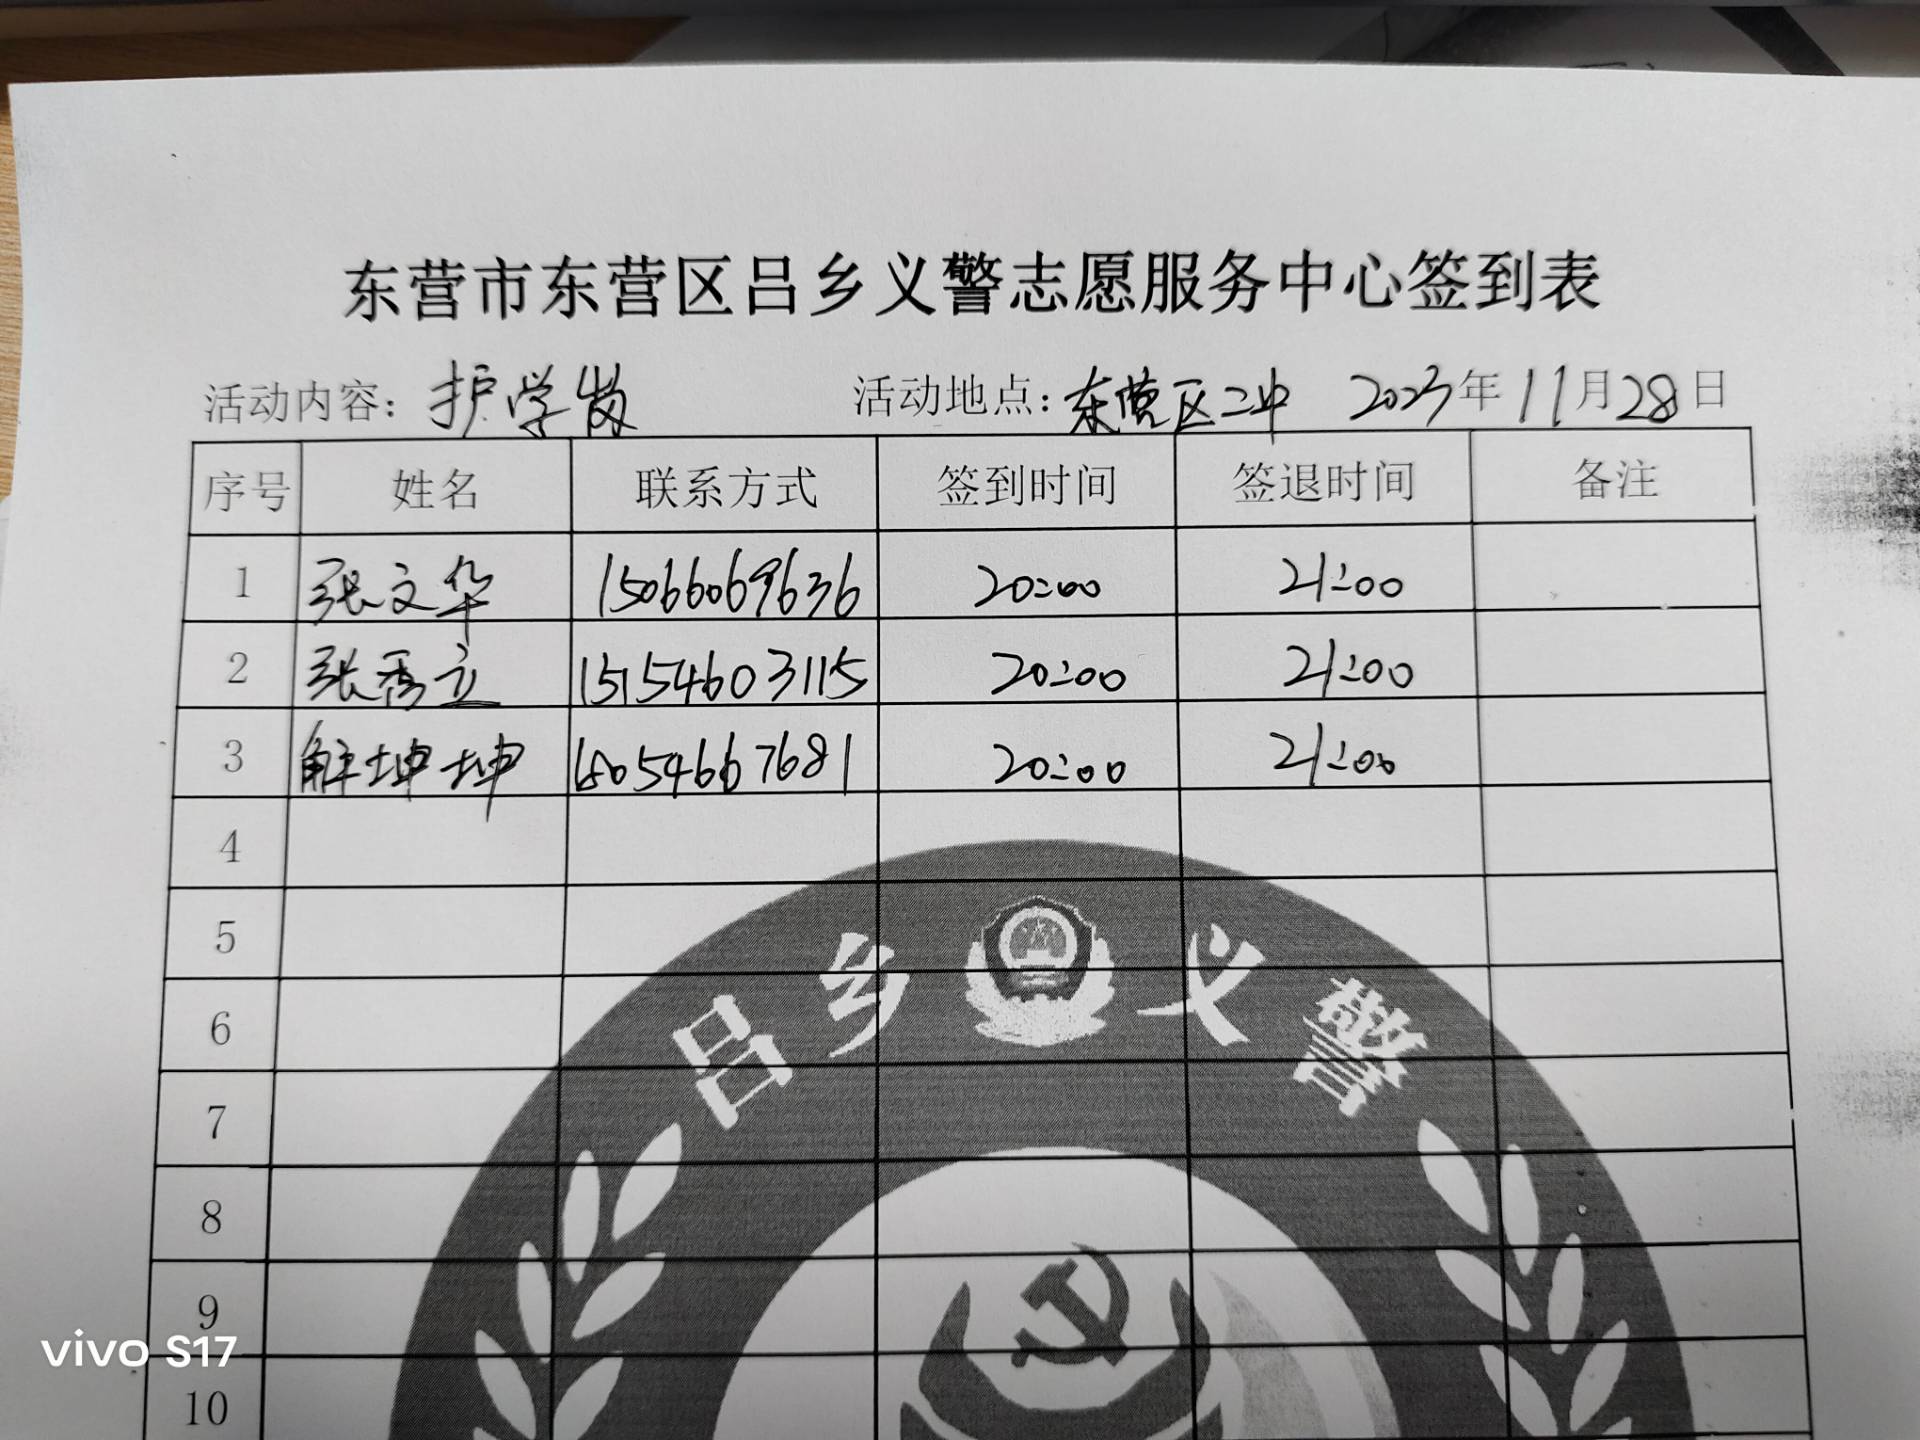 东营市东营区吕乡义警志愿服务中心签到表
活动内容：护学岗 活动地点：东营区二中 2023年11月28日
序号 姓名 联系方式 签到时间 签退时间 备注
1 张文华 15066069636 20:00 21:00
2 张秀立 15154603115 20:00 21:00
3 解坤坤 18054667681 20:00 21:00
4
5
6
7
8
9
10
吕乡义警
vivo S17